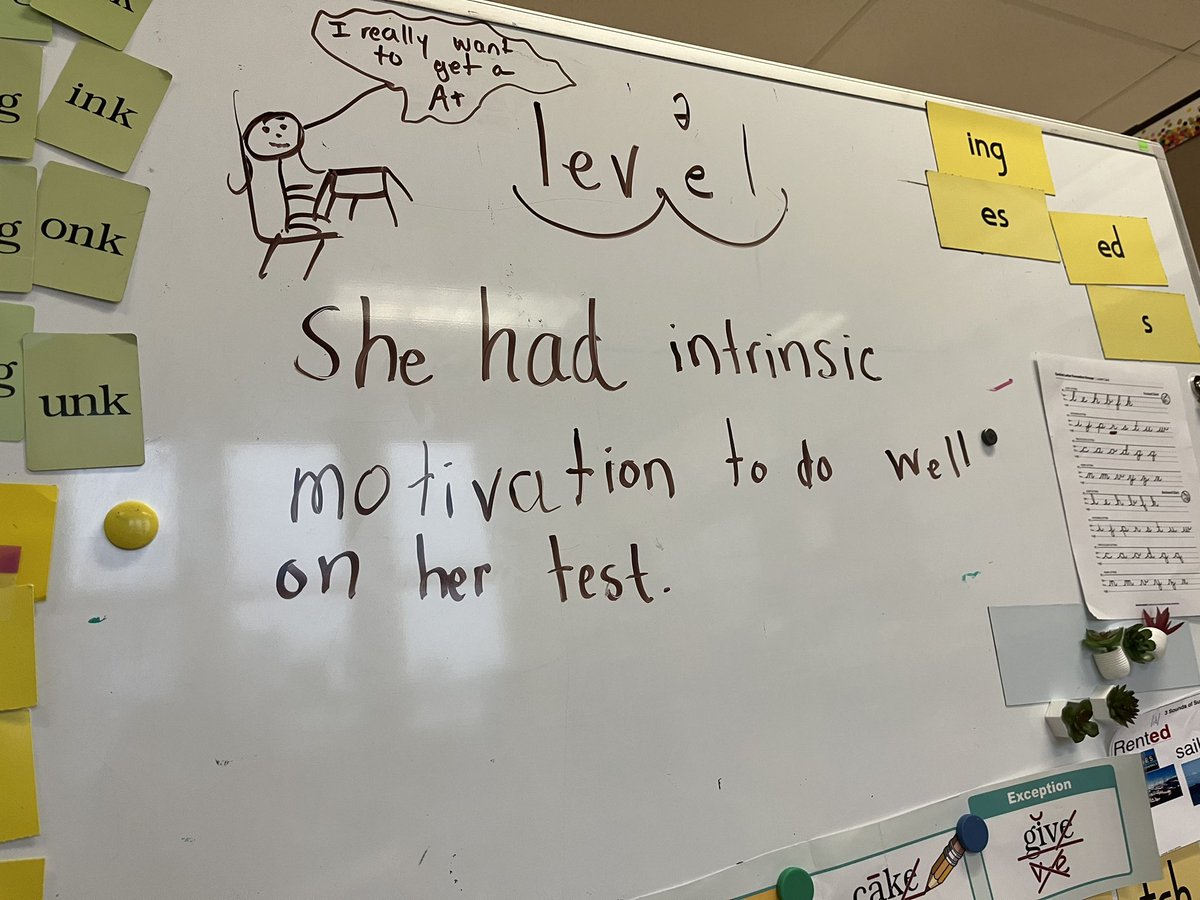 I really want
to get a
A+
ə
level
She had intrinsic
motivation to do well
on her test.
ink
onk
unk
g
g
g
ing
es
ed
s
Exception
give
cake
Rented
sail
3 Sounds of Su
tch